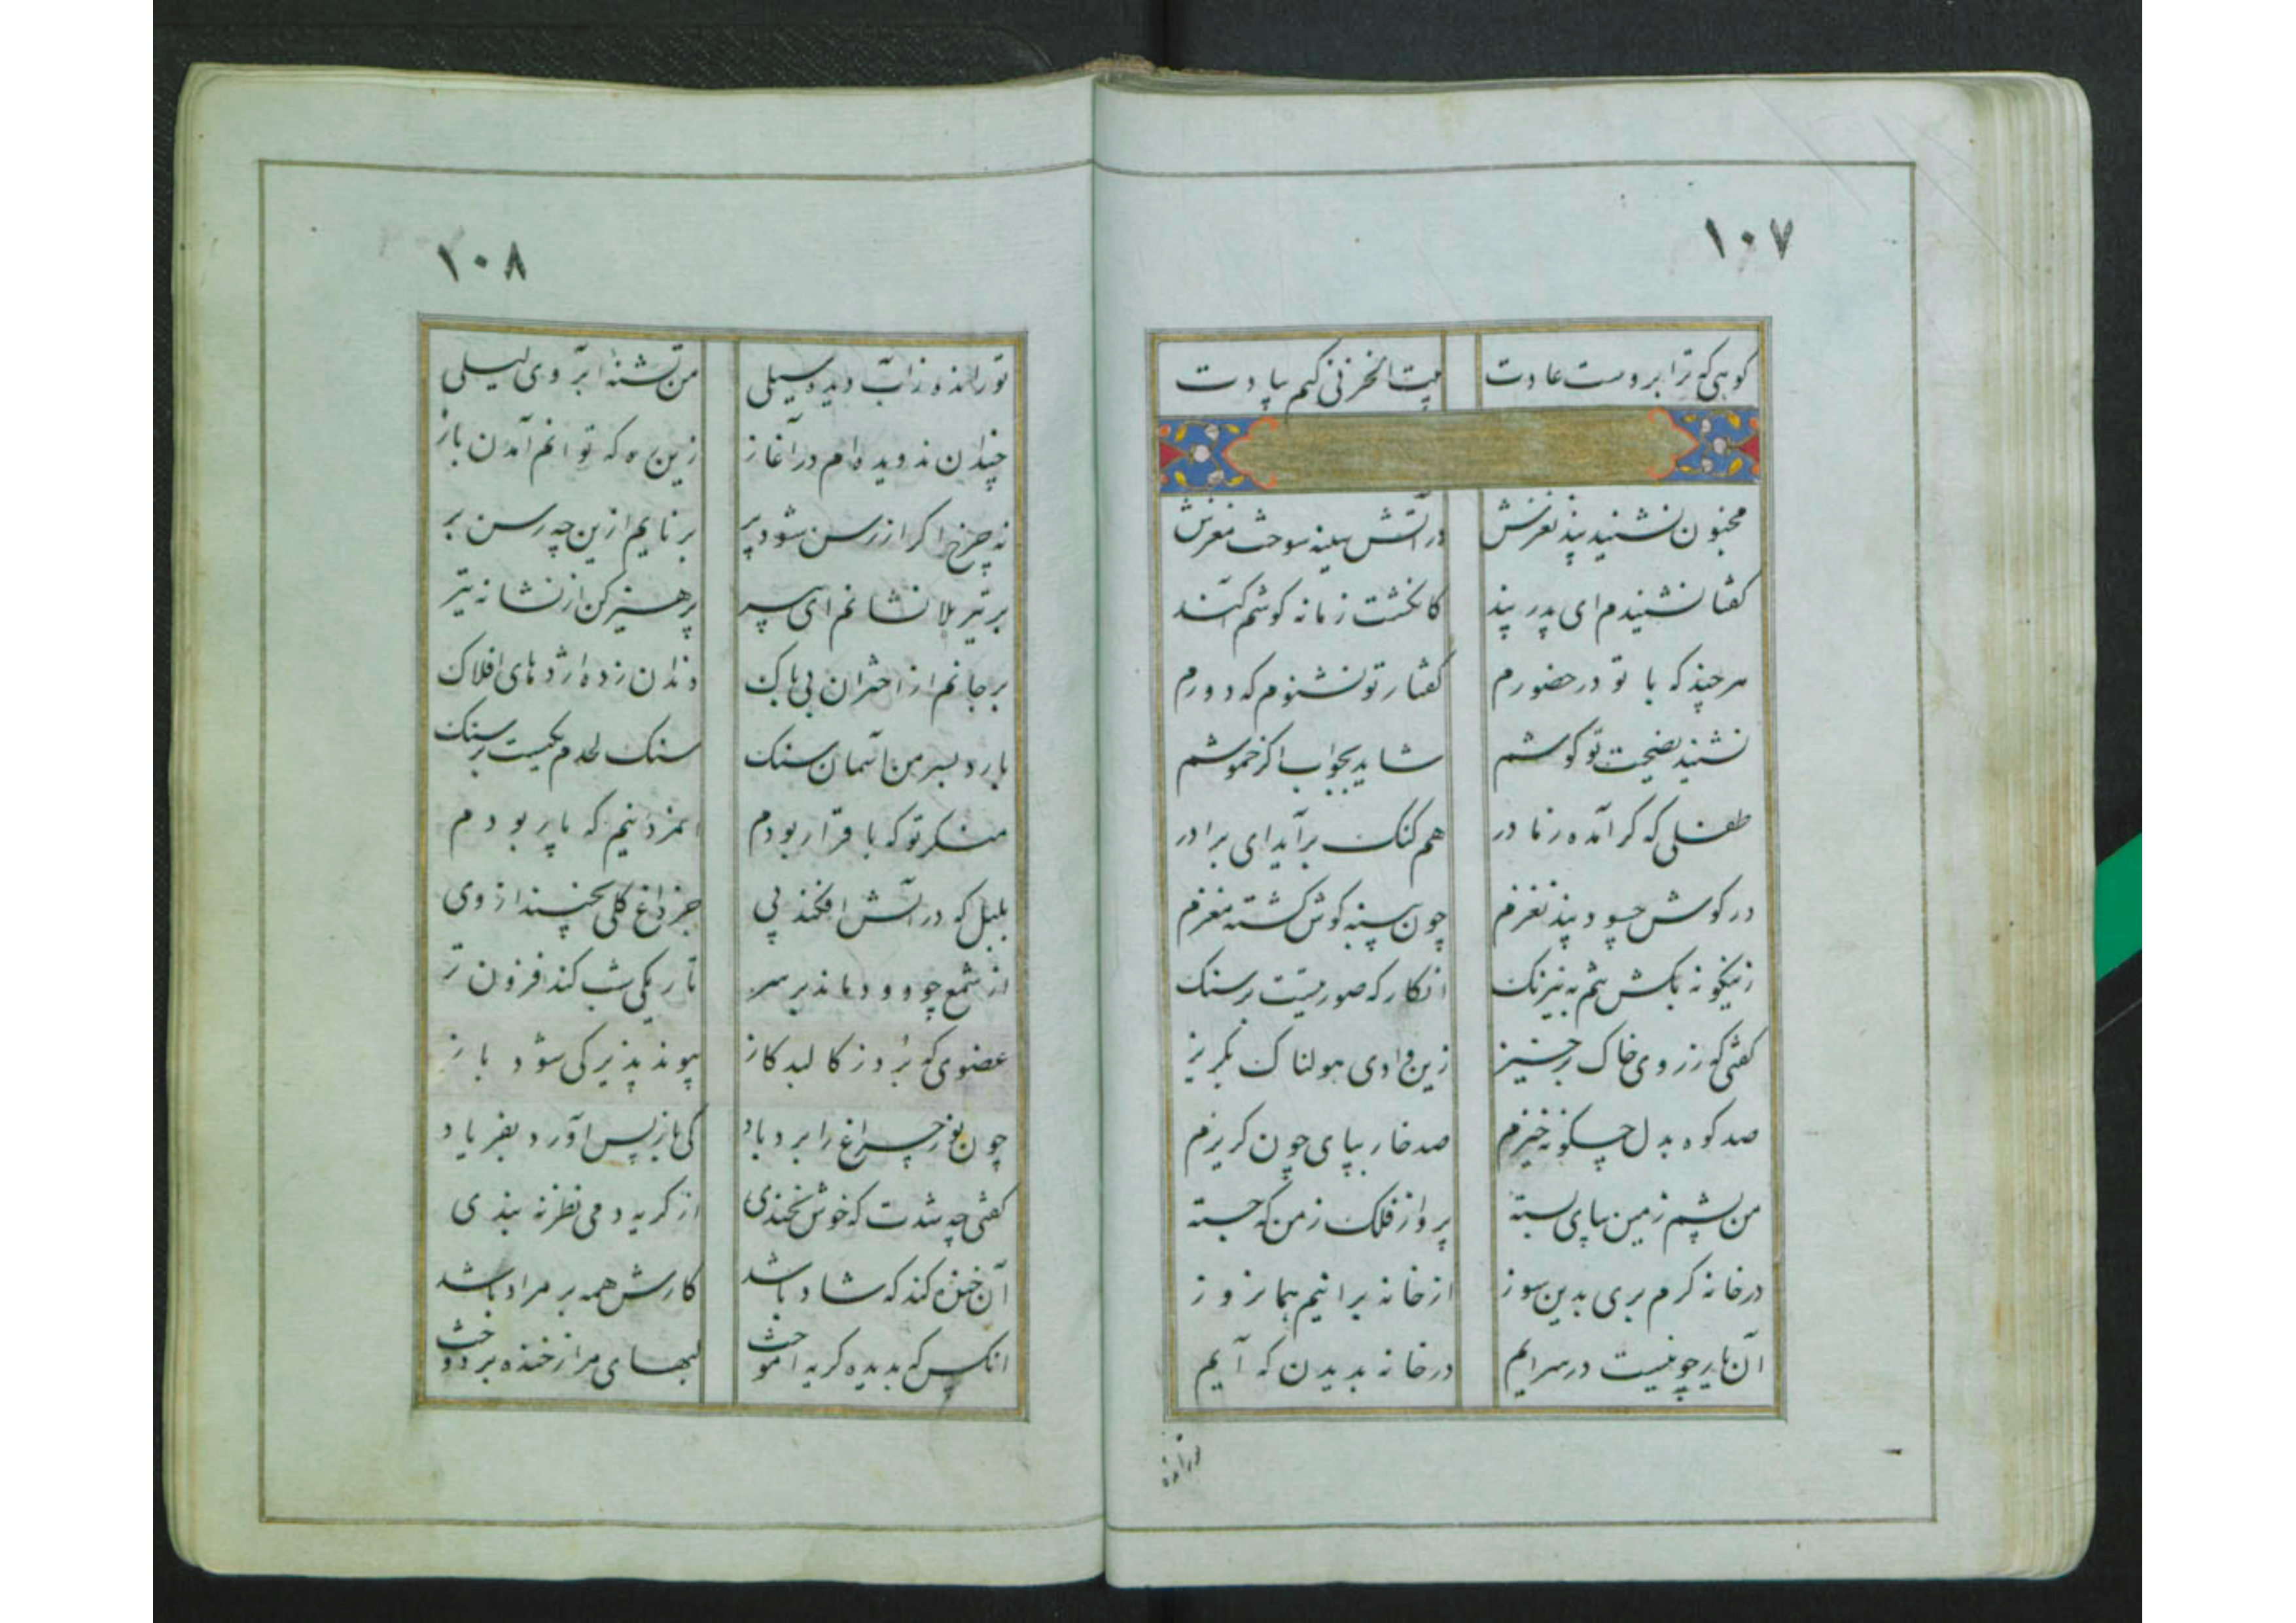 ۱۰۷
کوهی که ترا بروست عادت کنم بیادت
مجنون نشنید پند نغزش در آتش سینه سوخت مغزش
گفتا نشنیدم ای پدر پند کانگشت زمانه گوشم آکند
هرچند که با تو در حضورم گفتار تو نشنوم که دورم
نشنید نصیحت تو گوشم شاید بجواب اگر خموشم
طفلی که کر آمده ز مادر هم گنگ برآید ای برادر
در گوش چو پند نغزم چون پنبه گوش گشته مغزم
زینگونه بکش به نیرنگ انگار که صورتیست بر سنگ
گفتی که ز روی خاک برخیز زین وادی هولناک بگریز
صد کوه بدل چگونه خیزم صد خار بپای چون گریزم
من پشم زمین بپای بسته پرواز فلک ز من که جسته
در خانه گرم بری بدین سوز از خانه برانیم همانروز
آن یار چو نیست در سرایم در خانه بدیدن که آیم
تو رانده
۱۰۸
تو رانده ز آب دیده سیلی من تشنه ابر و روی لیلی
چندان ندویده‌ام در آغاز زین ره که توانم آمدن باز
نه چرخ اگر از رسن شود پر برنایم ازین چه رسن بر
بر تیر بلا نشانم ای پیر پرهیز کن از نشانه تیر
بر جانم از اختران بی باک دندان زده اژدهای افلاک
بارد بسر من آسمان سنگ سنگ لحدم یکیست بر سنگ
منگر تو که با قرار بودم امرد نیم که پار بودم
بلبل که در آتش افکند پی جز داغ گلی نچیند از وی
از شمع چو دود ماند بر سر تاریکی شب کند فزون تر
عضوی که برد ز کالبد کاز پیوند پذیر کی شود باز
چون نور چراغ را برد باد کی باز پس آورد بفریاد
گفتی چه شدت که خوش نخندی از گریه دمی نظر نبندی
آن خنده کند که شاد باشد کارش همه بر مراد باشد
آنکس که بدیده گریه آموخت لبهای مرا ز خنده بردوخت